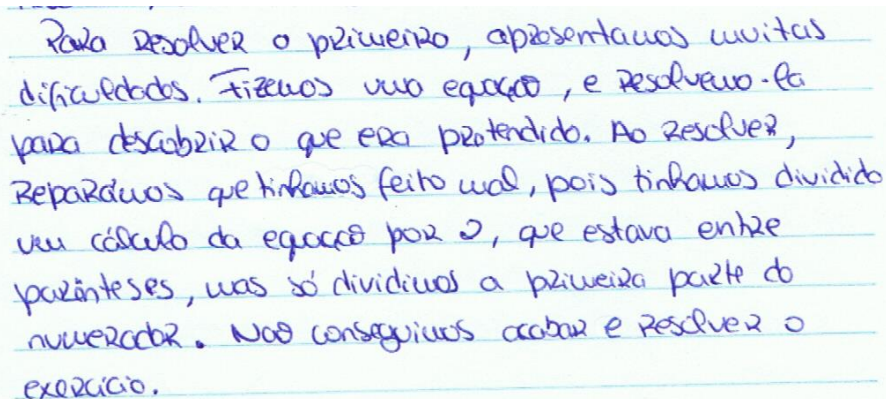 Para resolver o primeiro, apresentamos muitas
dificuldades. Fizemos uma equação, e resolvemo-la
para descobrir o que era pretendido. Ao resolver,
reparámos que tinhamos feito mal, pois tinhamos dividido
um cálculo da equação por 2, que estava entre
parênteses, mas só dividimos a primeira parte do
numerador. Não conseguimos acabar e resolver o
exercicio.